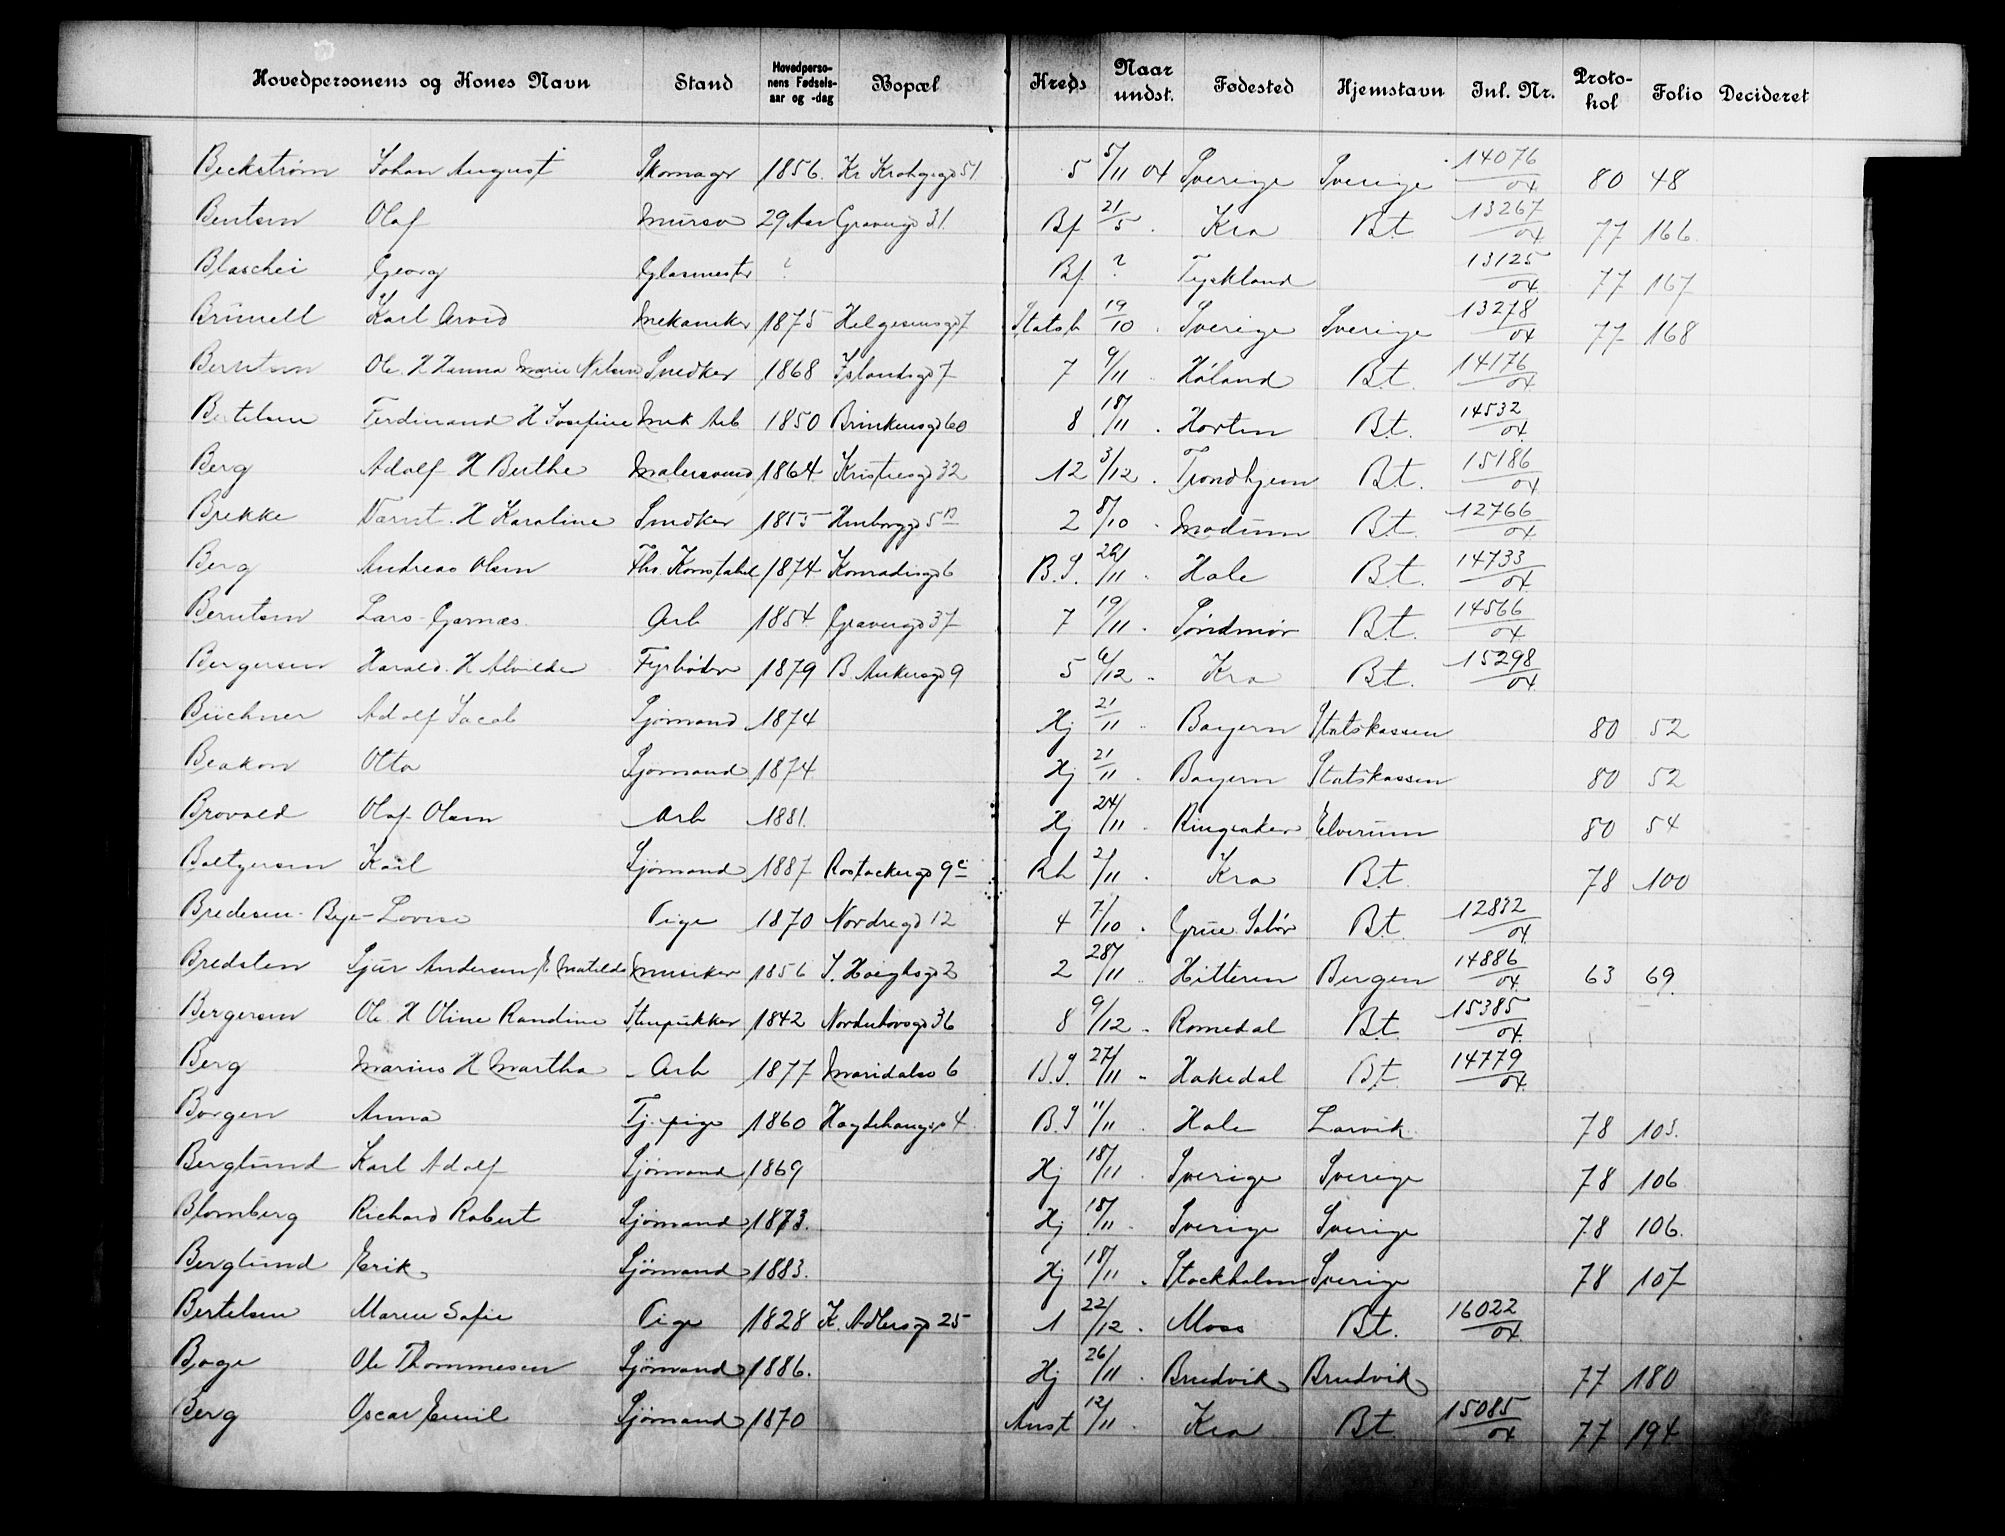 Hovedpersonens og Kones Navn Stand Hovedpersonens Fødselsaar og -dag Bopæl Kreds Naar undst. Fødested Hjemstavn Inl. Nr. Protokol Folio Decideret
Beckstrøm Johan August Skomager 1856. Kr Krohgsgd 51 5 5/11 04 Sverige Sverige 14076/04 80 48
Berntsen Olaf Mursv 29 Aar Gravergd 31. Bf 21/5 . Kra Bt 13267/04 77 166.
Blaschei Georg Glasmester ? Bf ? Tyskland 13125/04 77 167
Brunell Karl Arvid Mekaniker 1875 Helgesensgd 7 Statsb 19/10 . Sverige Sverige 13278/04 77 168
Berntsen Ole. H Hanna Marie Nilsen Snedker 1868 Islandsgd 7 7 9/11 . Høland Bt. 14176/04
Bertelsen Ferdinand H Josefine Mek Arb 1850 Brinkensgd 60 8 18/11 . Horten Bt. 14532/04
Berg Adolf H Berthe Malersvend 1864 Kristiesgd 32 12 3/12 . Trondhjem Bt. 15186/04
Brekke H Karoline Snedker 1855 5 B 2 8/10 . Modum Bt. 12766/04
Berg Andreas Olsen Ths. Konstabel 1874 Konradisgd 6 B.S. 26/11 . Hole Bt. 14733/04
Berntsen Lars Garnæs Arb 1854 Gravergd 37 7 19/11 . Søndmør Bt. 14566/04
Bergersen Harald. H Alvilde Fyrbøder 1879 B. Ankersgd 9 5 6/12 . Kra Bt. 15298/04
Büchner Adolf Jacob Sjømand 1874 Hj 21/11 Bayern Statskassen 80 52
Beakon Otto Sjømand 1874 Hj 21/11 . Bayern Statskassen 80 52
Brovold Olaf Olsen Arb 1881. Hj 24/11 . Ringsaker Elverum 80 54
Boltzersen Karl Sjømand 1887 Rostockergd 9 c Rh 2/11 . Kra Bt. 78 100
Bredesen-Bye- Lovise Pige 1870 Nordregd 12 4 7/10 . Grue Solør Bt. 12832/04
Bredsten Sjur Andersen E Matilde Musiker 1856 2 2 28/11 . Hitteren Bergen 14886/04 63 69.
Bergersen Ole. H Oline Randine Stenpukker 1842 Norderhovsgd 36 8 9/12 . Romedal Bt. 15385/04
Berg Marius H Martha Arb 1877 Maridalsv 6 B.S. 27/11 . Hakedal Bt. 14779/04
Borgen Anna Tj. pige 1860 Hægdehaugsv 4 B.S 11/11 . Hole Larvik 78 103.
Berglund Karl Adolf Sjømand 1869 Hj 18/11 . Sverige Sverige 78 106
Blomberg Richard Robert Sjømand 1873. Hj 18/11 . Sverige Sverige 78 106.
Berglund Erik Sjømand 1883. Hj 18/11 . Stockholm Sverige 78 107
Bertelsen Maren Sofie Pige 1828 K. Adlersgd 25 1 22/12 . Moss Bt. 16022/04
Boge Ole Thommesen Sjømand 1886. Hj 26/11 . Brudvik Brudvik 77 180
Berg Oscar Emil Sjømand 1870 Anst 12/11 . Kra Bt. 15085/04 77 194